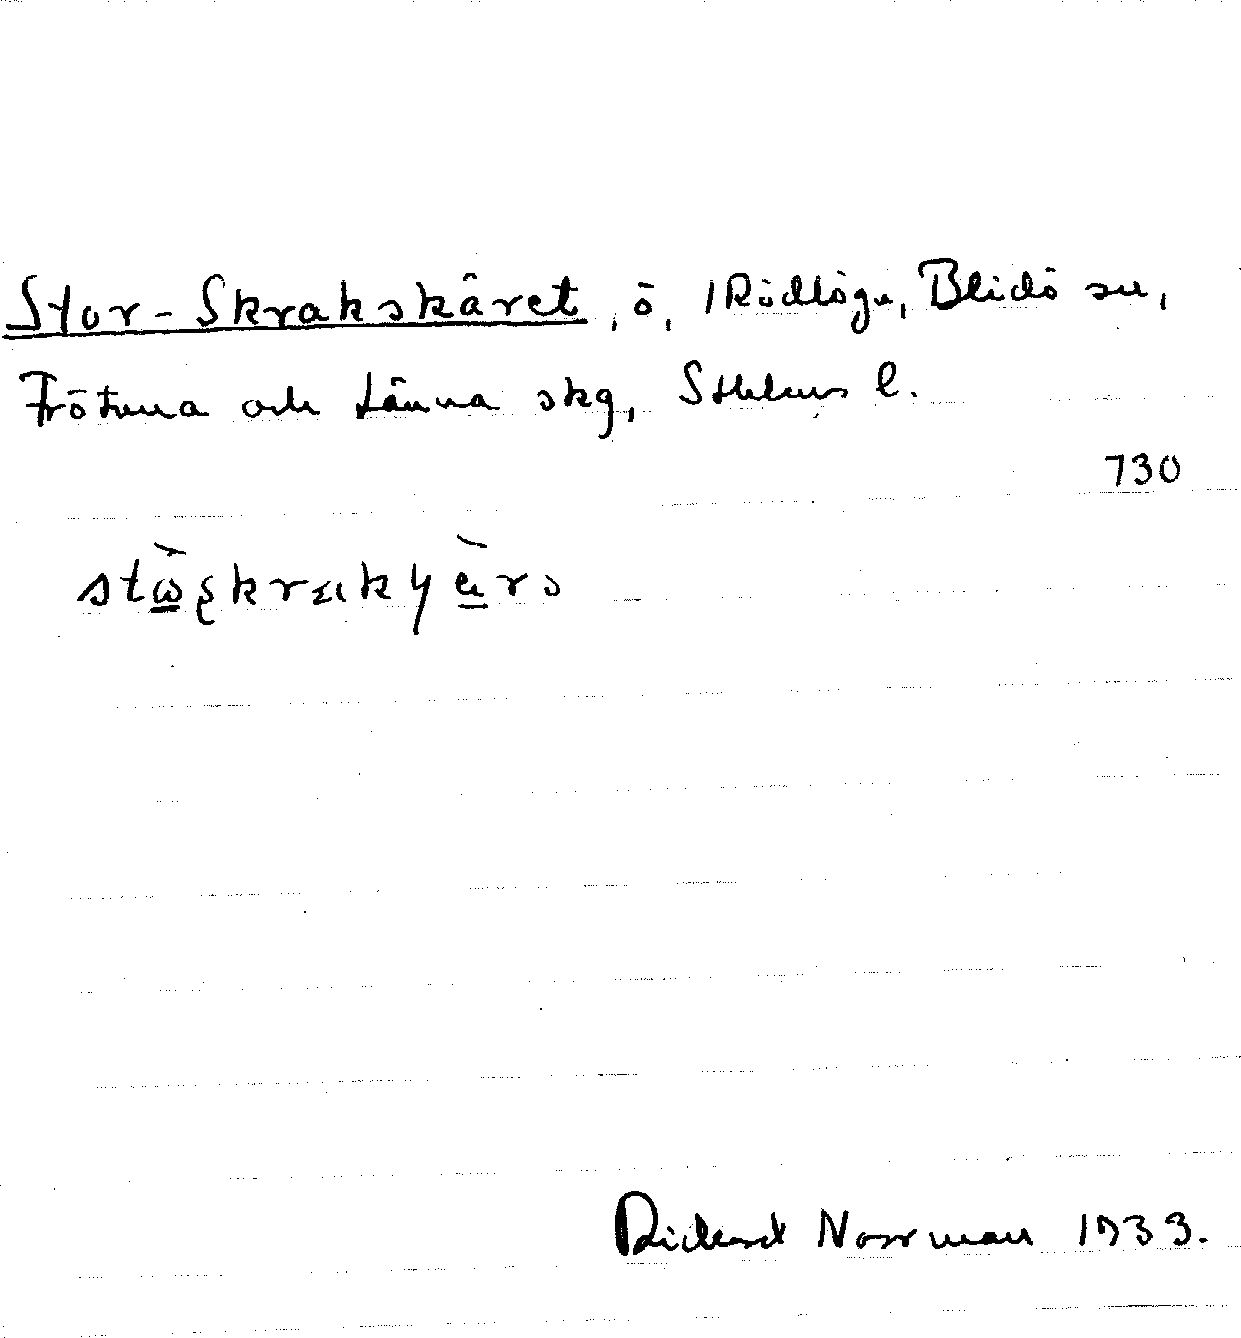 Stor-Skrakskäret, ö, Rödlöga, Blidö sn,
Frötuna och Länna skg, Sthlms l.
730
Rickard Norrman 1933.